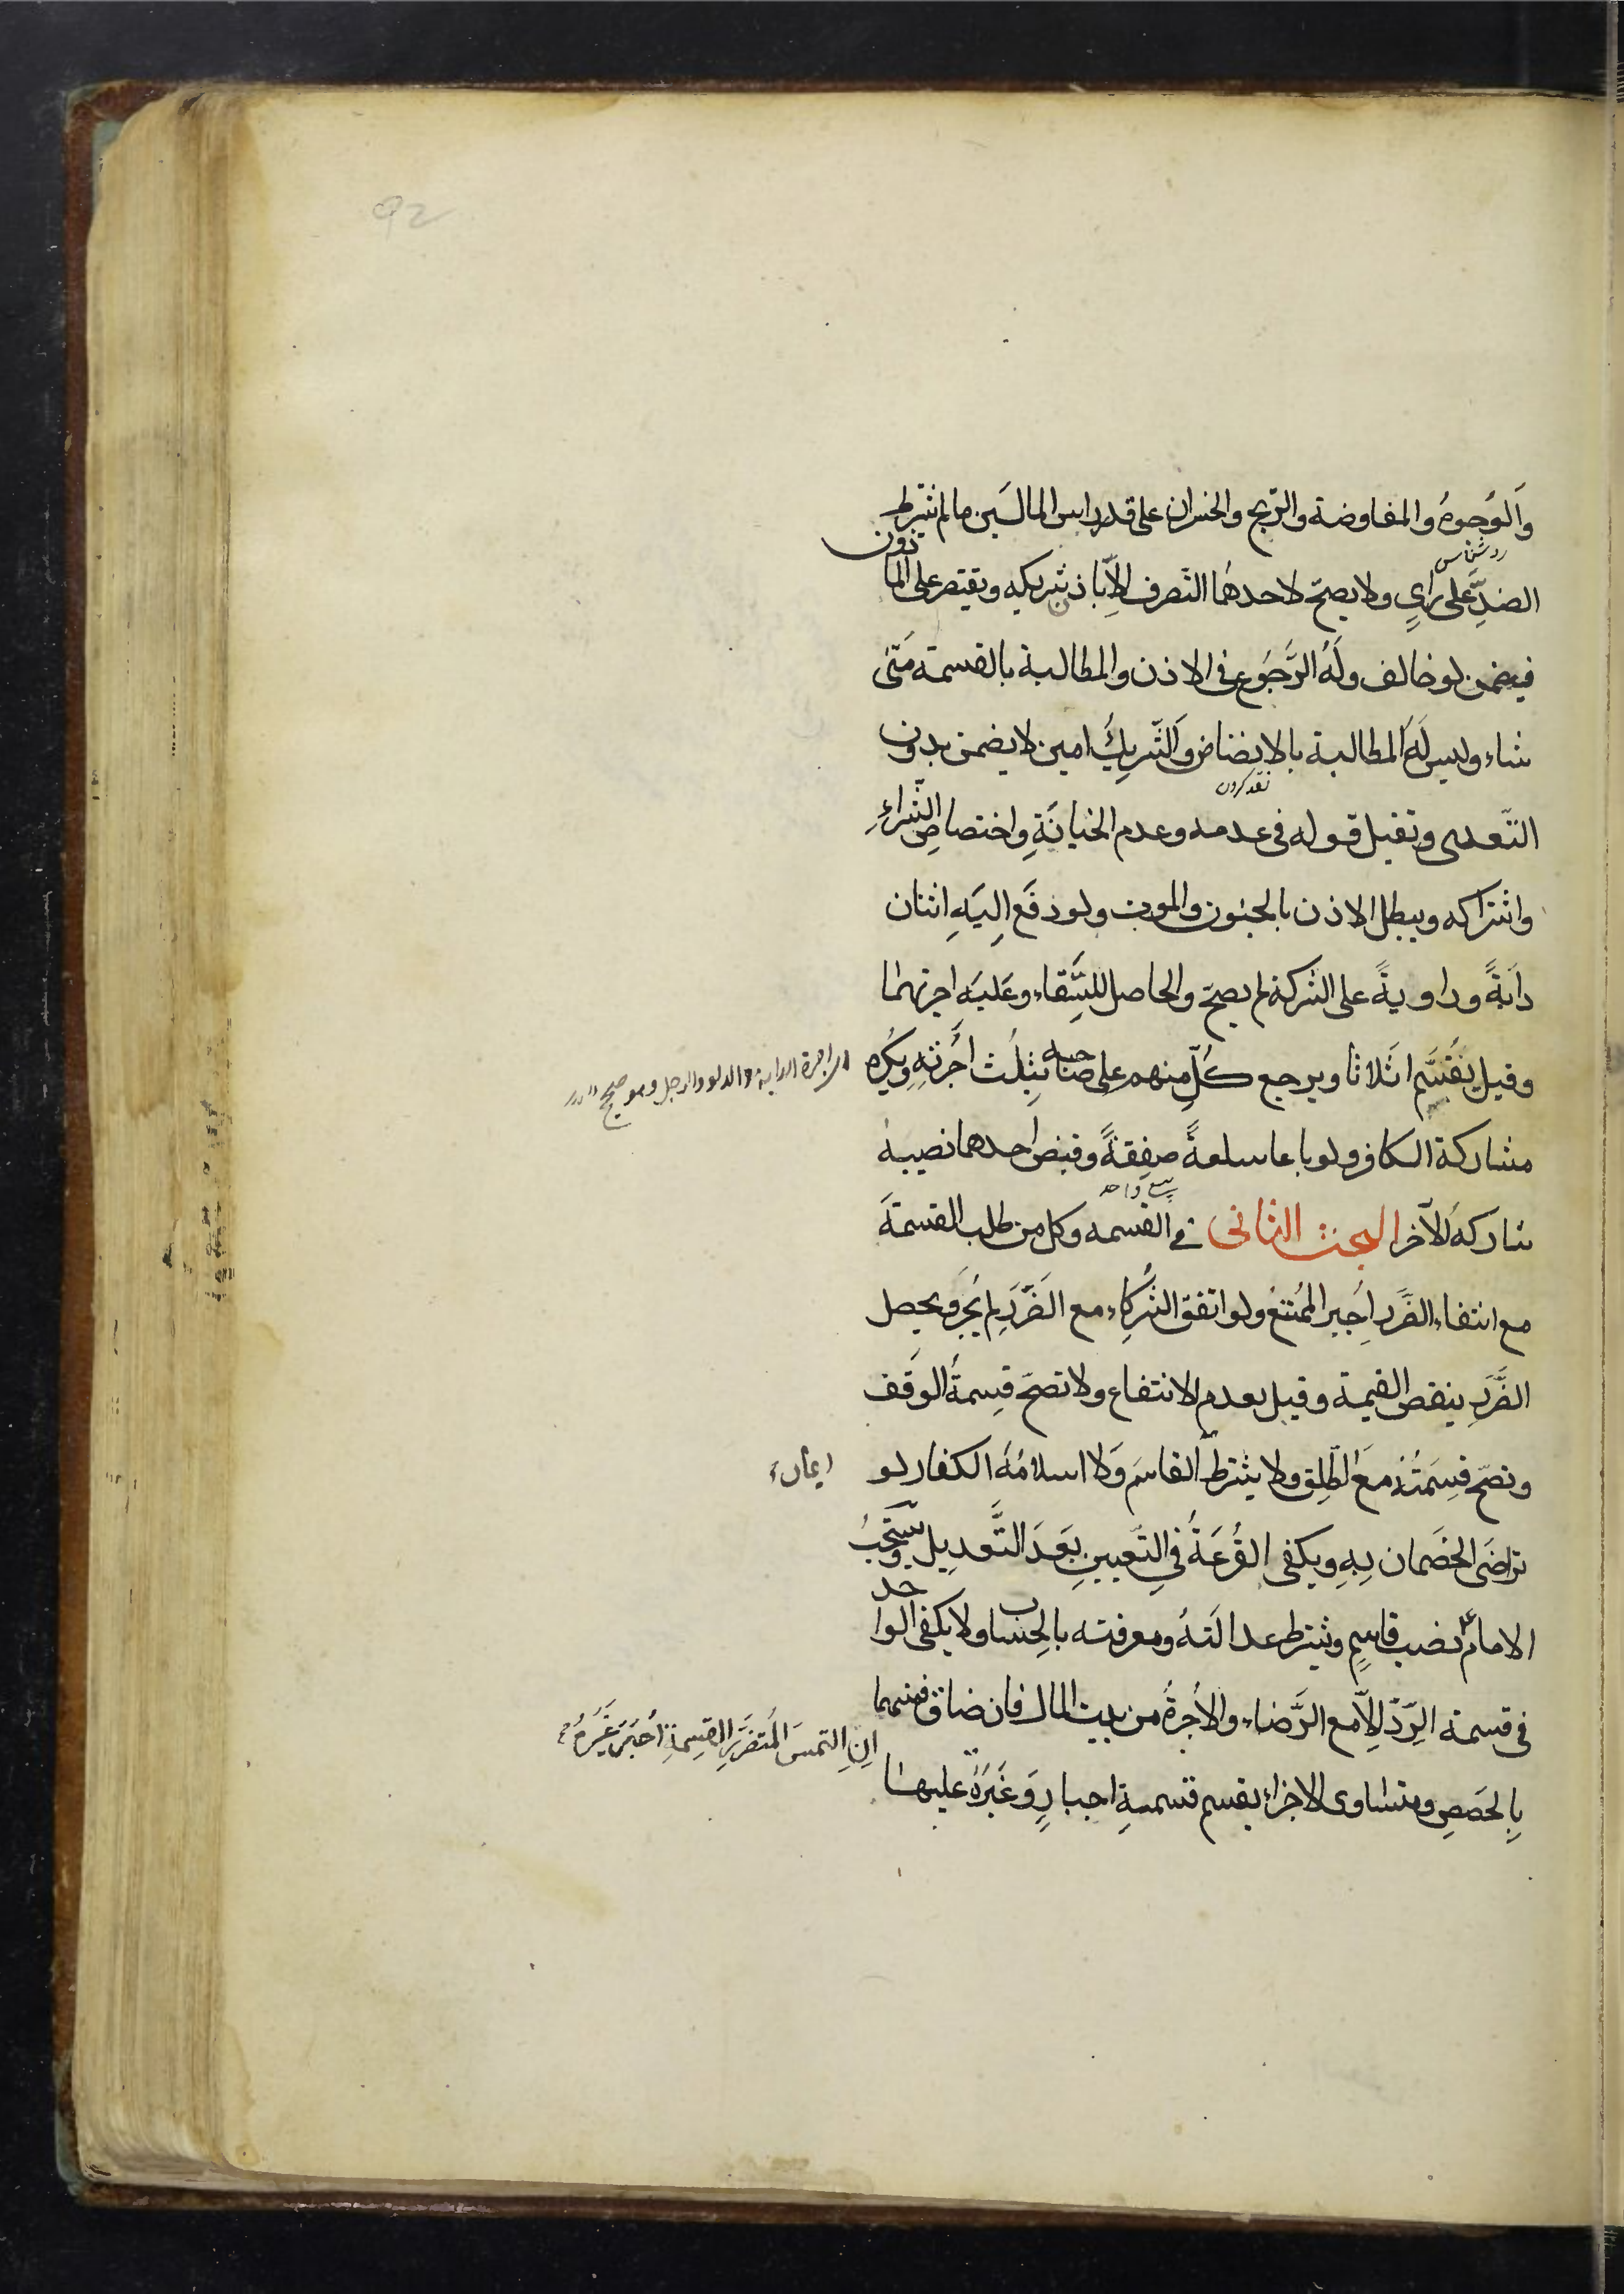 92
وَالوُجوهُ والمفاوضة والرّبح والخسران على قدر راس المالَين ما لم يشترط
الضدِّ عَلى رَايٍ ولا يصحّ لاحدهُما التصرف الّا باذن شريكه ويقتصر على الماذون
فيضمن لو خالف ولَهُ الرَّجوُع فى الاذن والمطالبة بالقسمة مَتَى
شاء وليس لَهُ المطالبة بالانضاض وَالشّرِيكُ امين لا يضمن بدون
نقد كردن
التّعدى وتقبل قوله فى عدمه وعدم الخيانَةِ واختصاصِ الشّراءِ
واشتراكه ويبطل الاذن بالجنون والموت ولو دفَع اِليَهِ اثنان
دابَةً وراويةً على الشركة لم يصحّ والحاصل للسَّقاء وعَليَه اجرتهما
وقيل يُقسَّم اثلاثا ويرجع كلّ منهم على صاحبه بثِلُث اُجُرَته ويُكره
اجرة الدابة والدلو والرجل وهو صحيح
مشاركة الكافر ولو باعا سلعةً صفقةً وقبض احدهما نصيبه
بيع واحد
شاركه الآخر البحث الثانى فى القسمه وكل من طلب القسمَة
مع انتفاء الضَّرر اُجبر المُمتنع ولو اتفق الشُركاء مع الضَّررِ لم يجُز ويحصل
الضَّررِ بنقص القيمة وقيل بعدم الانتفاع ولا تصحّ قِسمةُ الوقَف
وتصحّ قسِمَتُهُ معَ الطّلِق ولا يشترط القاسَم وَلا اسلامُهُ الكفار لو
تراضَى الخصَمان بِهِ ويكفى القُرعَةُ فىِ التّعيينِ بَعَدَ التَّعدِيل ويستحّبُ
الامامُ نصب قاسِمٍ ويشترط عدالَتهُ ومعرفته بالحِساب ولا يكفى الواحد
فى قسمة الرّدّ اِلّا مع الرَّضاء والاُجرةُ من بيت المال فان ضاق فمنهما
اِنِ التمسَ المُتضرَّرِ القِسمةِ اُجبَرَ غَيَرهُ
بالحصَصِ ومتساوى الاجزاء يقسم قسمةِ اجبارِ وَغَيَرهُ عليها